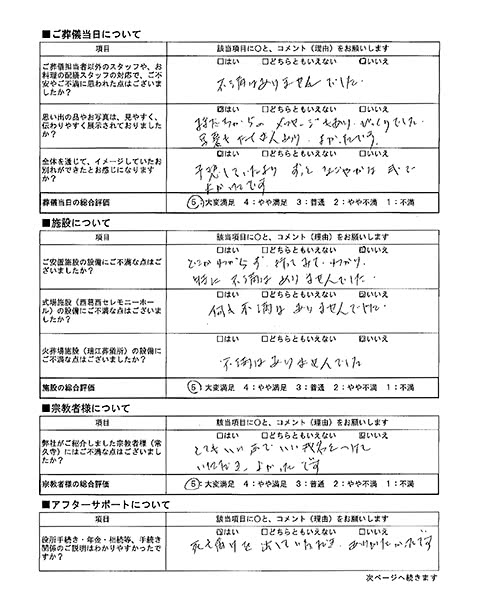 ■ご葬儀当日について
項目 該当項目に○と、コメント（理由）をお願いします
ご葬儀担当者以外のスタッフや、お
料理の配膳スタッフの対応で、ご不
安やご不満に思われた点はござい
ましたか？
□はい □どちらともいえない ☑いいえ
不満はありませんでした。
思い出の品やお写真は、見やすく、
伝わりやすく展示されておりました
か？
☑はい □どちらともいえない □いいえ
メッセージもあり、びっくりでした。
よかったです。
全体を通じて、イメージしていたお
別れができたとお感じになります
か？
☑はい □どちらともいえない □いいえ
予想していたより ずっと なごやかな 式で
よかったです
葬儀当日の総合評価 ⑤：大変満足 4：やや満足 3：普通 2：やや不満 1：不満
■施設について
項目 該当項目に○と、コメント（理由）をお願いします
ご安置施設の設備にご不満な点はご
ざいましたか？
□はい □どちらともいえない ☑いいえ
特に 不満は ありませんでした。
式場施設（西葛西セレモニーホー
ル）の設備にご不満な点はございま
したか？
□はい □どちらともいえない ☑いいえ
何も 不満は ありませんでした
火葬場施設（瑞江葬儀所）の設備に
ご不満な点はございましたか？
□はい □どちらともいえない ☑いいえ
不満はありませんでした
施設の総合評価 ⑤：大変満足 4：やや満足 3：普通 2：やや不満 1：不満
■宗教者様について
項目 該当項目に○と、コメント（理由）をお願いします
弊社がご紹介しました宗教者様（常
久寺）にはご不満な点はございまし
たか？
□はい □どちらともいえない ☑いいえ
とてもいい方で いい戒名をつけて
いただき、よかったです
宗教者様の総合評価 ⑤：大変満足 4：やや満足 3：普通 2：やや不満 1：不満
■アフターサポートについて
項目 該当項目に○と、コメント（理由）をお願いします
役所手続き・年金・相続等、手続き
関係のご説明はわかりやすかったで
すか？
☑はい □どちらともいえない □いいえ
死亡届けを 出していただき、ありがたかったです
次ページへ続きます